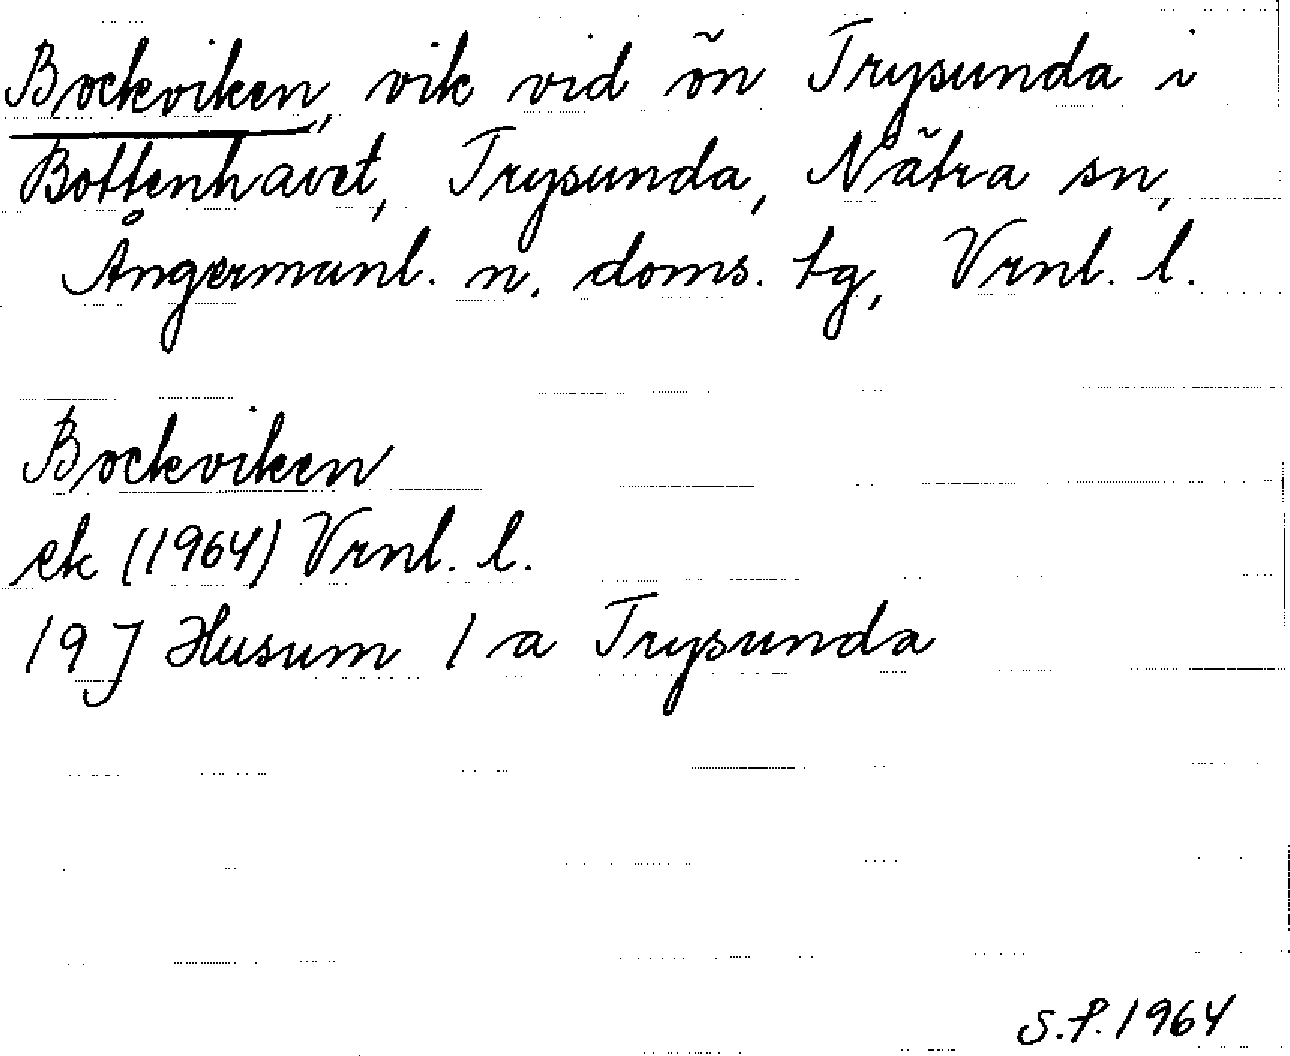 Bockviken, vik vid ön Trysunda i
Bottenhavet, Trysunda, Nätra sn,
Ångermanl. n. doms. tg, Vrnl. l.
Bockviken
ek (1964) Vrnl. l.
19J Husum 1 a Trysunda
S.P. 1964